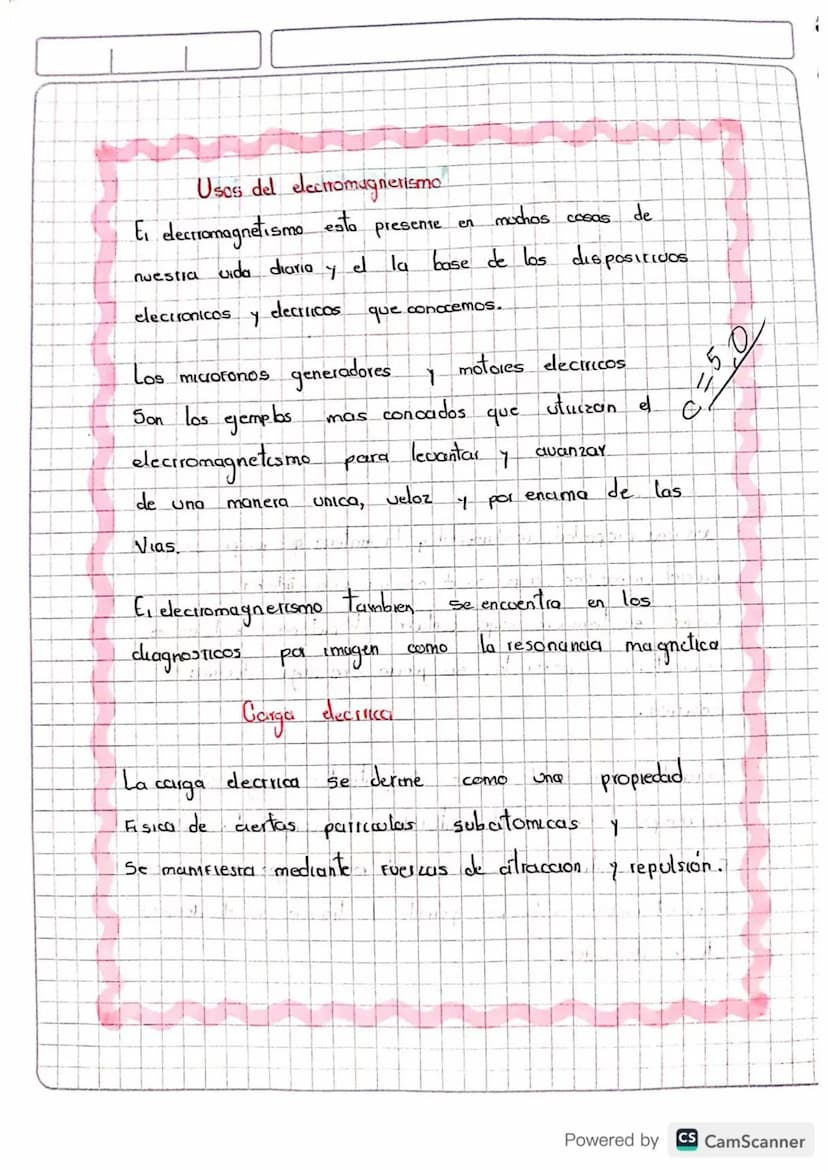 Usos del electromagnetismo
El electromagnetismo esta presente en muchas cosas de
nuestra vida diaria y el la base de los dispositivos
electronicos y electricos que conocemos.
Los microfonos generadores y motores electricos
Son los ejemplos mas conocados que utilizan el
electromagnetismo para levantar y avanzar
de una manera unica, veloz y por encima de las
Vias.
El electromagnetismo tambien se encuentra en los
diagnosticos por imagen como la resonancia magnetica
Carga electrica
La carga electrica se define como una propiedad
Fisica de ciertas particulas subatomicas y
Se manifiesta mediante Fuerzas de atraccion y repulsión.
C=5,0
Powered by CS CamScanner